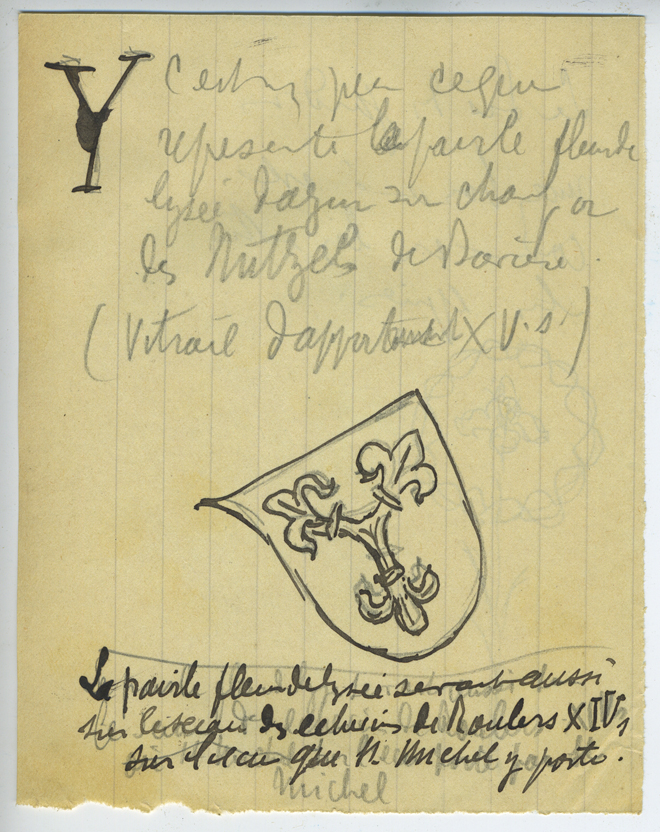 Y C'est un peu ce que
represente la pairle fleurde
lysée d'azur sur champ or
des Nutzels de Bavière
(Vitrail d'appartement XV.s.)
La pairle fleurdelysée servant aussi
sur le sceau des echevins de Roulers XIV s
sur l'ecu que St Michel y porte.
Michel